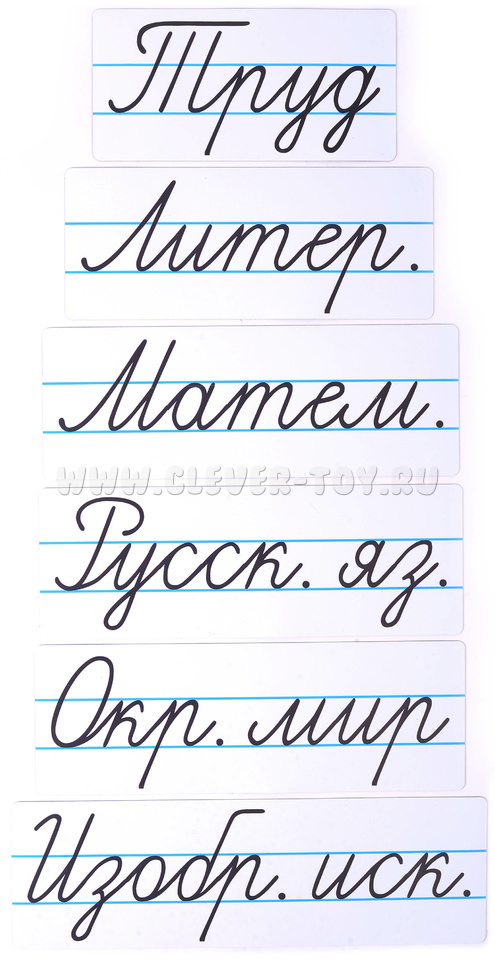 Труд
Литер.
Матем.
WWW.CLEVER-TOY.RU
Русск. яз.
Окр. мир
Изобр. иск.